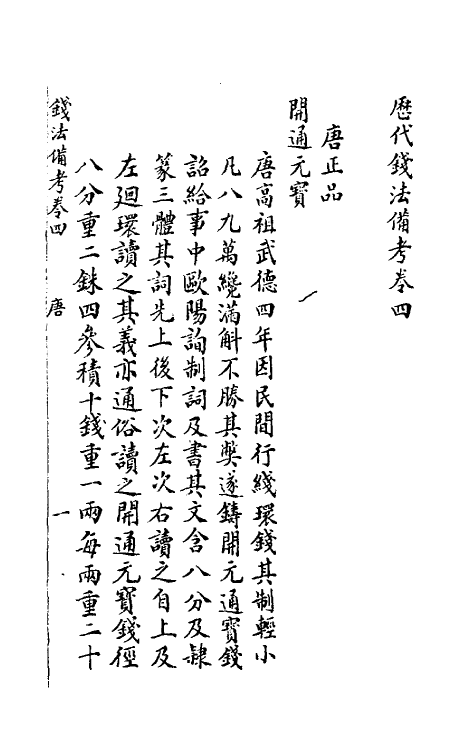 歷代錢法備考卷四
唐正品
開通元寳
唐高祖武德四年因民間行綫環錢其制輕小
凡八九萬纔滿斛不勝其獘遂鑄開元通寳錢
詔給事中歐陽詢制詞及書其文含八分及隷
篆三體其詞先上後下次左次右讀之自上及
左廻環讀之其義亦通俗讀之開通元寳錢徑
八分重二銖四參積十錢重一兩每兩重二十
錢法備考卷四 唐 一